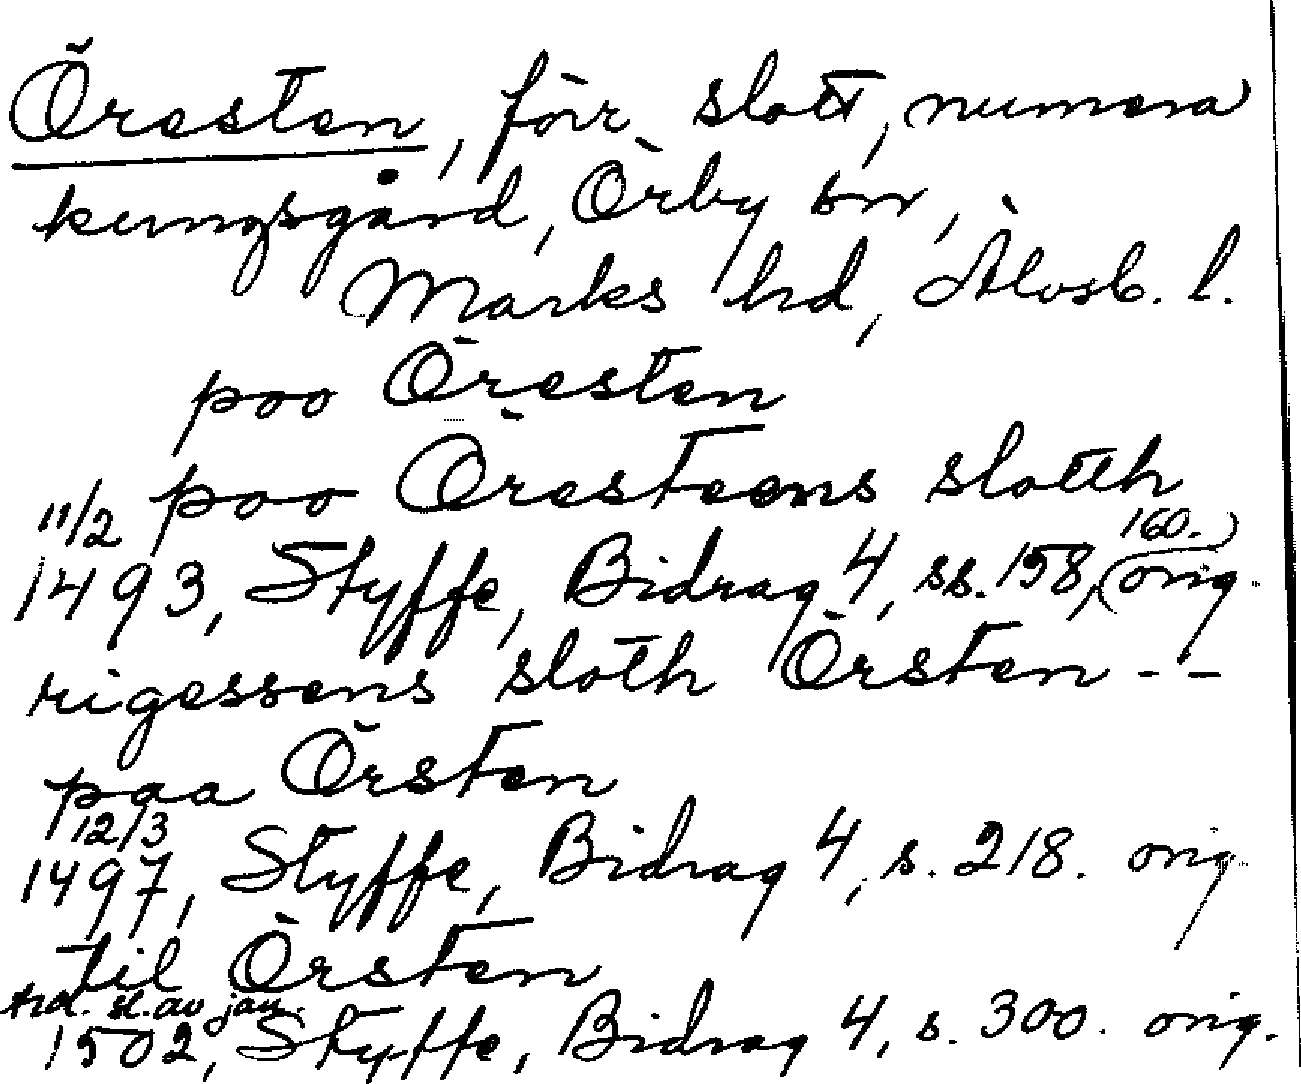 Öresten, förr slott, numera
kungsgård, Örby sn,
Marks hd, Älvsb. l.
poo Öresten
poo Öresteens slotth
11/2 1493, Styffe, Bidrag 4, ss. 158, 160. (orig.)
rigessens sloth Örsten - -
paa Örsten
12/3 1497, Styffe, Bidrag 4, s. 218. orig.
til Örsten
trol. sl. av jan. 1502, Styffe, Bidrag 4, s. 300. orig.